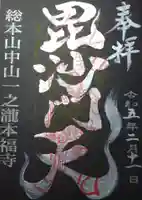 奉拝
令和五年二月十一日
毘沙門天
総本山中山一之瀧本福寺